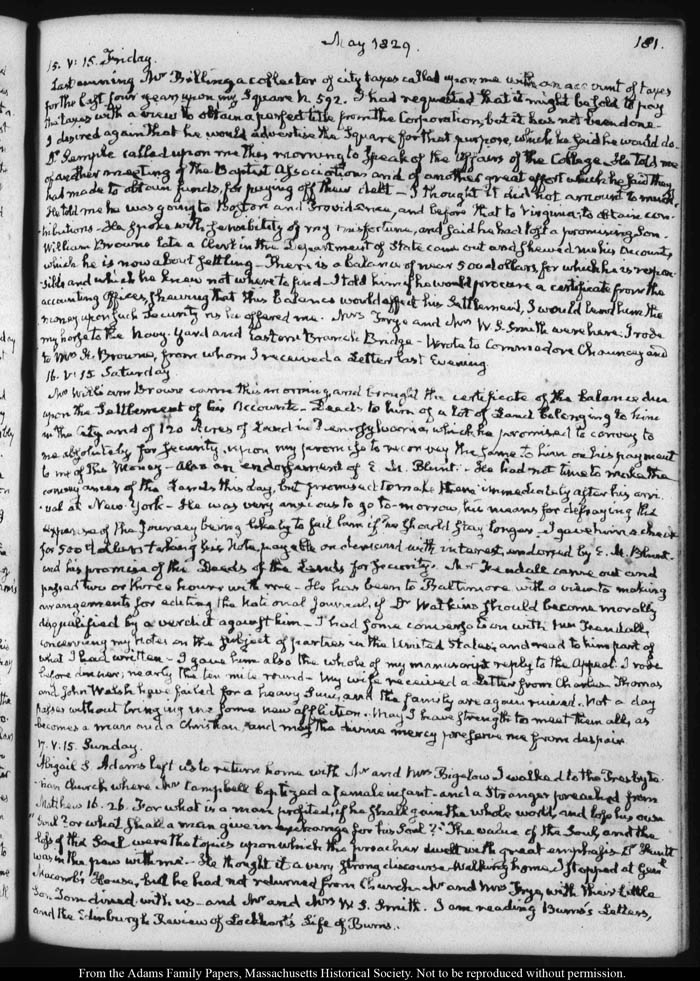 May 1829.
181.
15. V: 15. Friday.
Last evening Mr Billing a collector of city taxes called upon me with an account of taxes
for the last four years upon my Square N. 592. I had requested that it might be sold to pay
the taxes with a view to obtain a perfect title from the Corporation, but it has not been done—
I desired again that he would advertise the Square for that purpose, which he said he would do.
Dr Semple called upon me this morning, to speak of the Affairs of the College. He told me
of another meeting of the Baptist Associations and of another great effort which he said they
had made to obtain funds, for paying off their debt— I thought it did not amount to much.
He told me he was going to Boston and Providence, and before that to Virginia, to obtain con-
tributions. He spoke with sensibility of my misfortune, and said he had lost a promising Son.
William Browne late a Clerk in the Department of State came out and shewed me his Accounts,
which he is now about settling— There is a balance of near 500 dollars, for which he is respon-
sible and which he knew not where to find— I told him if he would procure a certificate from the
accounting Officer, shewing that this balance would effect his Settlement, I would lend him the
money upon such Security as he offered me. Mrs Frye and Mrs W. S. Smith were here. I rode
my horse to the Navy-Yard and Eastern Branch Bridge— Wrote to Commodore Chauncey and
to Mr H. Browne, from whom I received a Letter last Evening
16. V: 15. Saturday
Mr William Browne came this morning, and brought the certificate of the balance due
upon the Settlement of his Accounts— Deeds to him of a lot of Land belonging to him
in the City and of 120 Acres of Land in Pennsylvania, which he promised to convey to
me absolutely for Security, upon my promise to reconvey the same to him on his payment
to me of the Money— Also an endorsement of E. M. Blunt.— He had not time to make the
conveyances of the Lands this day, but promised to make them immediately after his arri-
val at New-York— He was very anxious to go to-morrow, his means for defraying the
expense of the Journey being likely to fail him if he should stay longer. I gave him a check
for 500 dollars taking his Note, payable on demand with interest, endorsed by E. M. Blunt.
and his promise of the Deeds of the Lands for Security. Mr Kendall came out and
passed two or three hours with me— He has been to Baltimore with a view to making
arrangements for editing the National Journal, if Dr Watkins should become morally
disqualified by a verdict against him— I had some conversation with Mr Kendall,
concerning my notes on the subject of parties in the United States, and read to him part of
what I had written— I gave him also the whole of my manuscript reply to the Appeal. I rode
before dinner, nearly the ten mile round— My wife received a Letter from Charles. Thomas
and John Welsh have failed for a heavy Sum, and the family are again ruined. Not a day
passes without bringing me some new affliction. May I have strength to meet them all, as
becomes a man and a Christian, and may the divine mercy preserve me from despair.
17. V: 15. Sunday.
Abigail S. Adams left us to return home with Mr and Mrs Bigelow. I walked to the Presbyte-
rian Church where Mr Campbell baptized a female infant— and a Stranger preached from
Matthew 16. 26. For what is a man profited, if he shall gain the whole world, and lose his own
Soul? or what shall a man give in exchange for his Soul?" The value of the Soul, and the
loss of the Soul were the topics upon which the preacher dwelt with great emphasis. Dr Huntt
was in the pew with me.— He thought it a very strong discourse. Walking home, I stopped at Genl
Macomb's House, but he had not returned from Church— Mr and Mrs Frye, with their little
Son Tom dined with us— and Mr and Mrs W. S. Smith. I am reading Burns's Letters,
and the Edinburgh Review of Lockhart's Life of Burns.
From the Adams Family Papers, Massachusetts Historical Society. Not to be reproduced without permission.